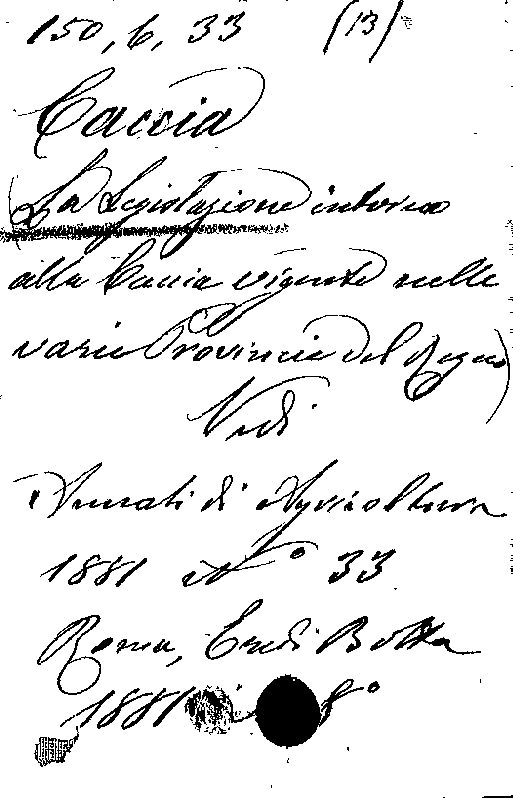 150,6,33 (13)
Caccia
(La Legislazione intorno
alla Caccia vigente nelle
varie Provincie del Regno)
Vedi
Annali di Agricoltura
1881 N° 33
Roma, Eredi Botta
1881 8°